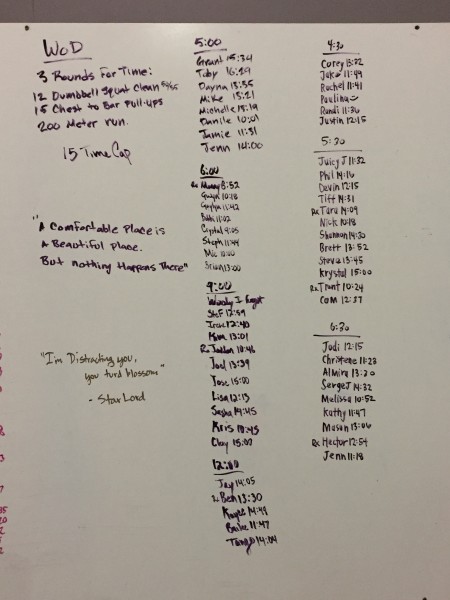 WOD
3 Rounds For Time:
12 Dumbbell Squat Clean 50/35
15 Chest to Bar Pull-ups
200 Meter run.
15 Time Cap
"A Comfortable Place is
A Beautiful Place.
But nothing Happens There"
"I'm Distracting you,
you turd blossom"
- Star Lord
5:00
Grant 15:34
Toby 16:29
Dayna 13:55
Mike 15:21
Michelle 15:19
Danile 10:01
Jamie 11:31
Jenn 14:00
6:00
Rx 8:52
10:18
11:42
11:02
Crystal 9:05
Steph 11:44
Mic 12:00
Brian 13:00
9:00
Wendy I forgot
Stef 12:59
Irene 12:40
Kim 13:01
Rx 10:46
Joel 13:39
Jose 15:00
Lisa 12:13
Sasha 14:45
Kris 10:45
Clay 15:00
12:00
Jay 14:05
Rx Ben 13:30
Kaylee 14:48
Blake 11:47
Tango 14:04
4:30
Corey 13:22
Jake 11:49
Rachel 11:41
Paulina
Randi 11:36
Justin 12:15
5:30
Juicy J 11:32
Phil 14:16
Devin 12:15
Tiff 14:31
Rx Tara 14:09
Nick 10:18
Shannon 14:30
Brett 13:52
Steve 13:45
Krystal 15:00
Rx Trent 10:24
Com 12:37
6:30
Jodi 12:15
Christene 11:23
Almira 13:20
Serge J 14:32
Melissa 10:52
Kathy 11:47
Mason 13:06
Rx Hector 12:54
Jenn 11:18